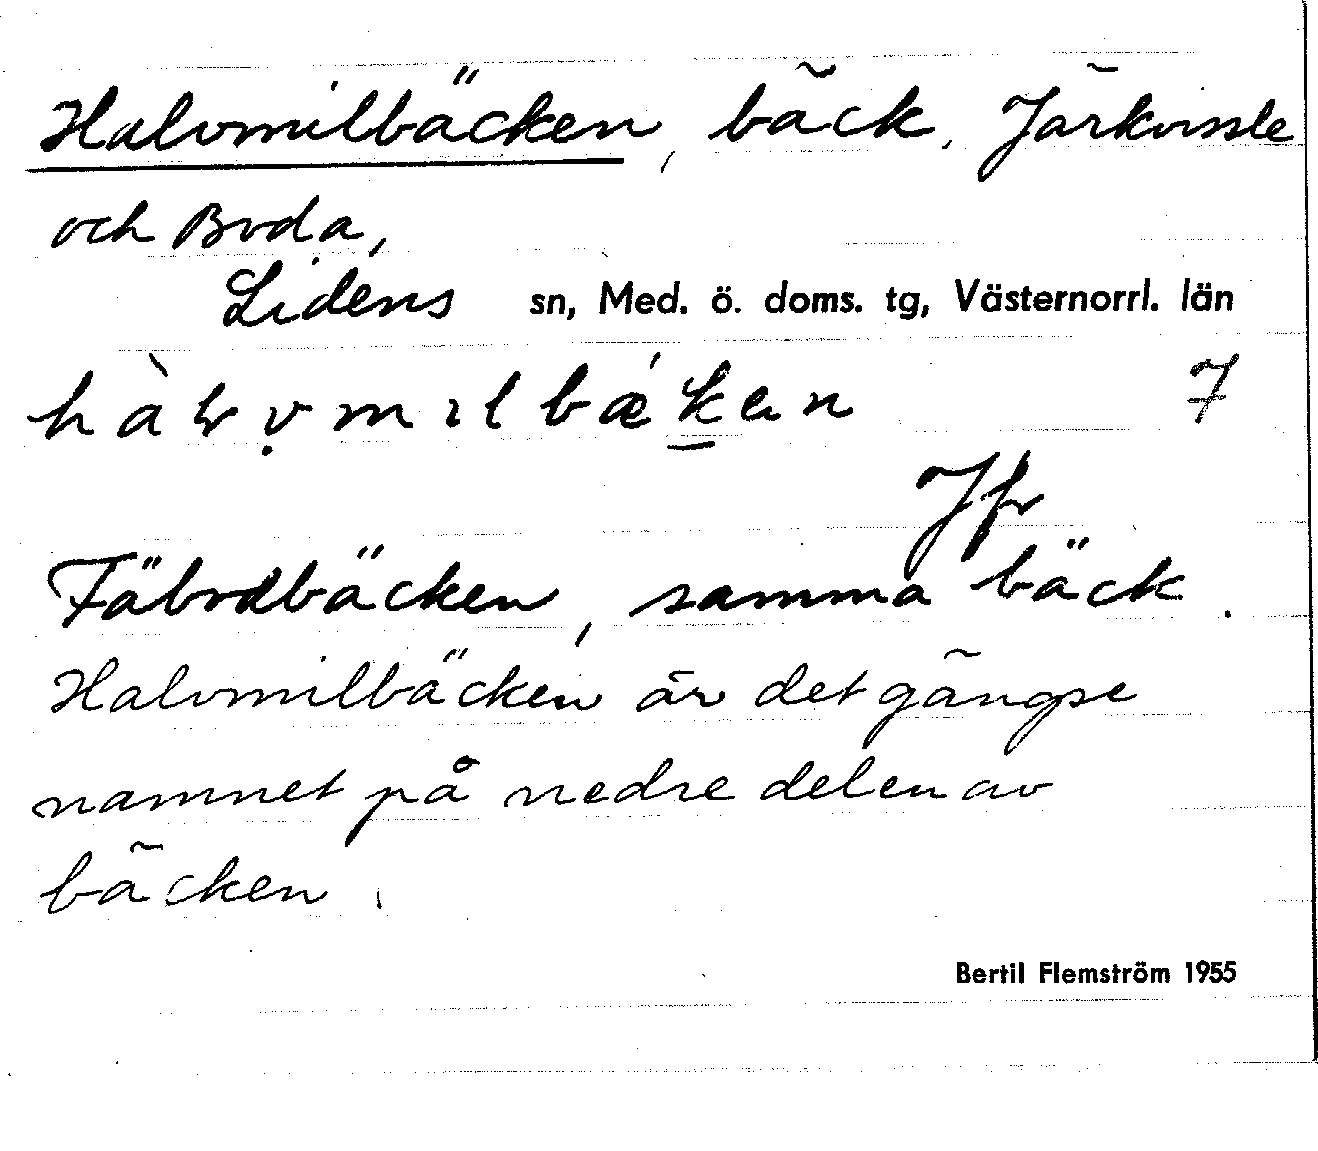 Halvmilbäcken, bäck, Järkvissle
och Boda,
Lidens sn, Med. ö. doms. tg, Västernorrl. län
7
Jfr
Fäbodbäcken, samma bäck.
Halvmilbäcken är det gängse
namnet på nedre delen av
bäcken.
Bertil Flemström 1955